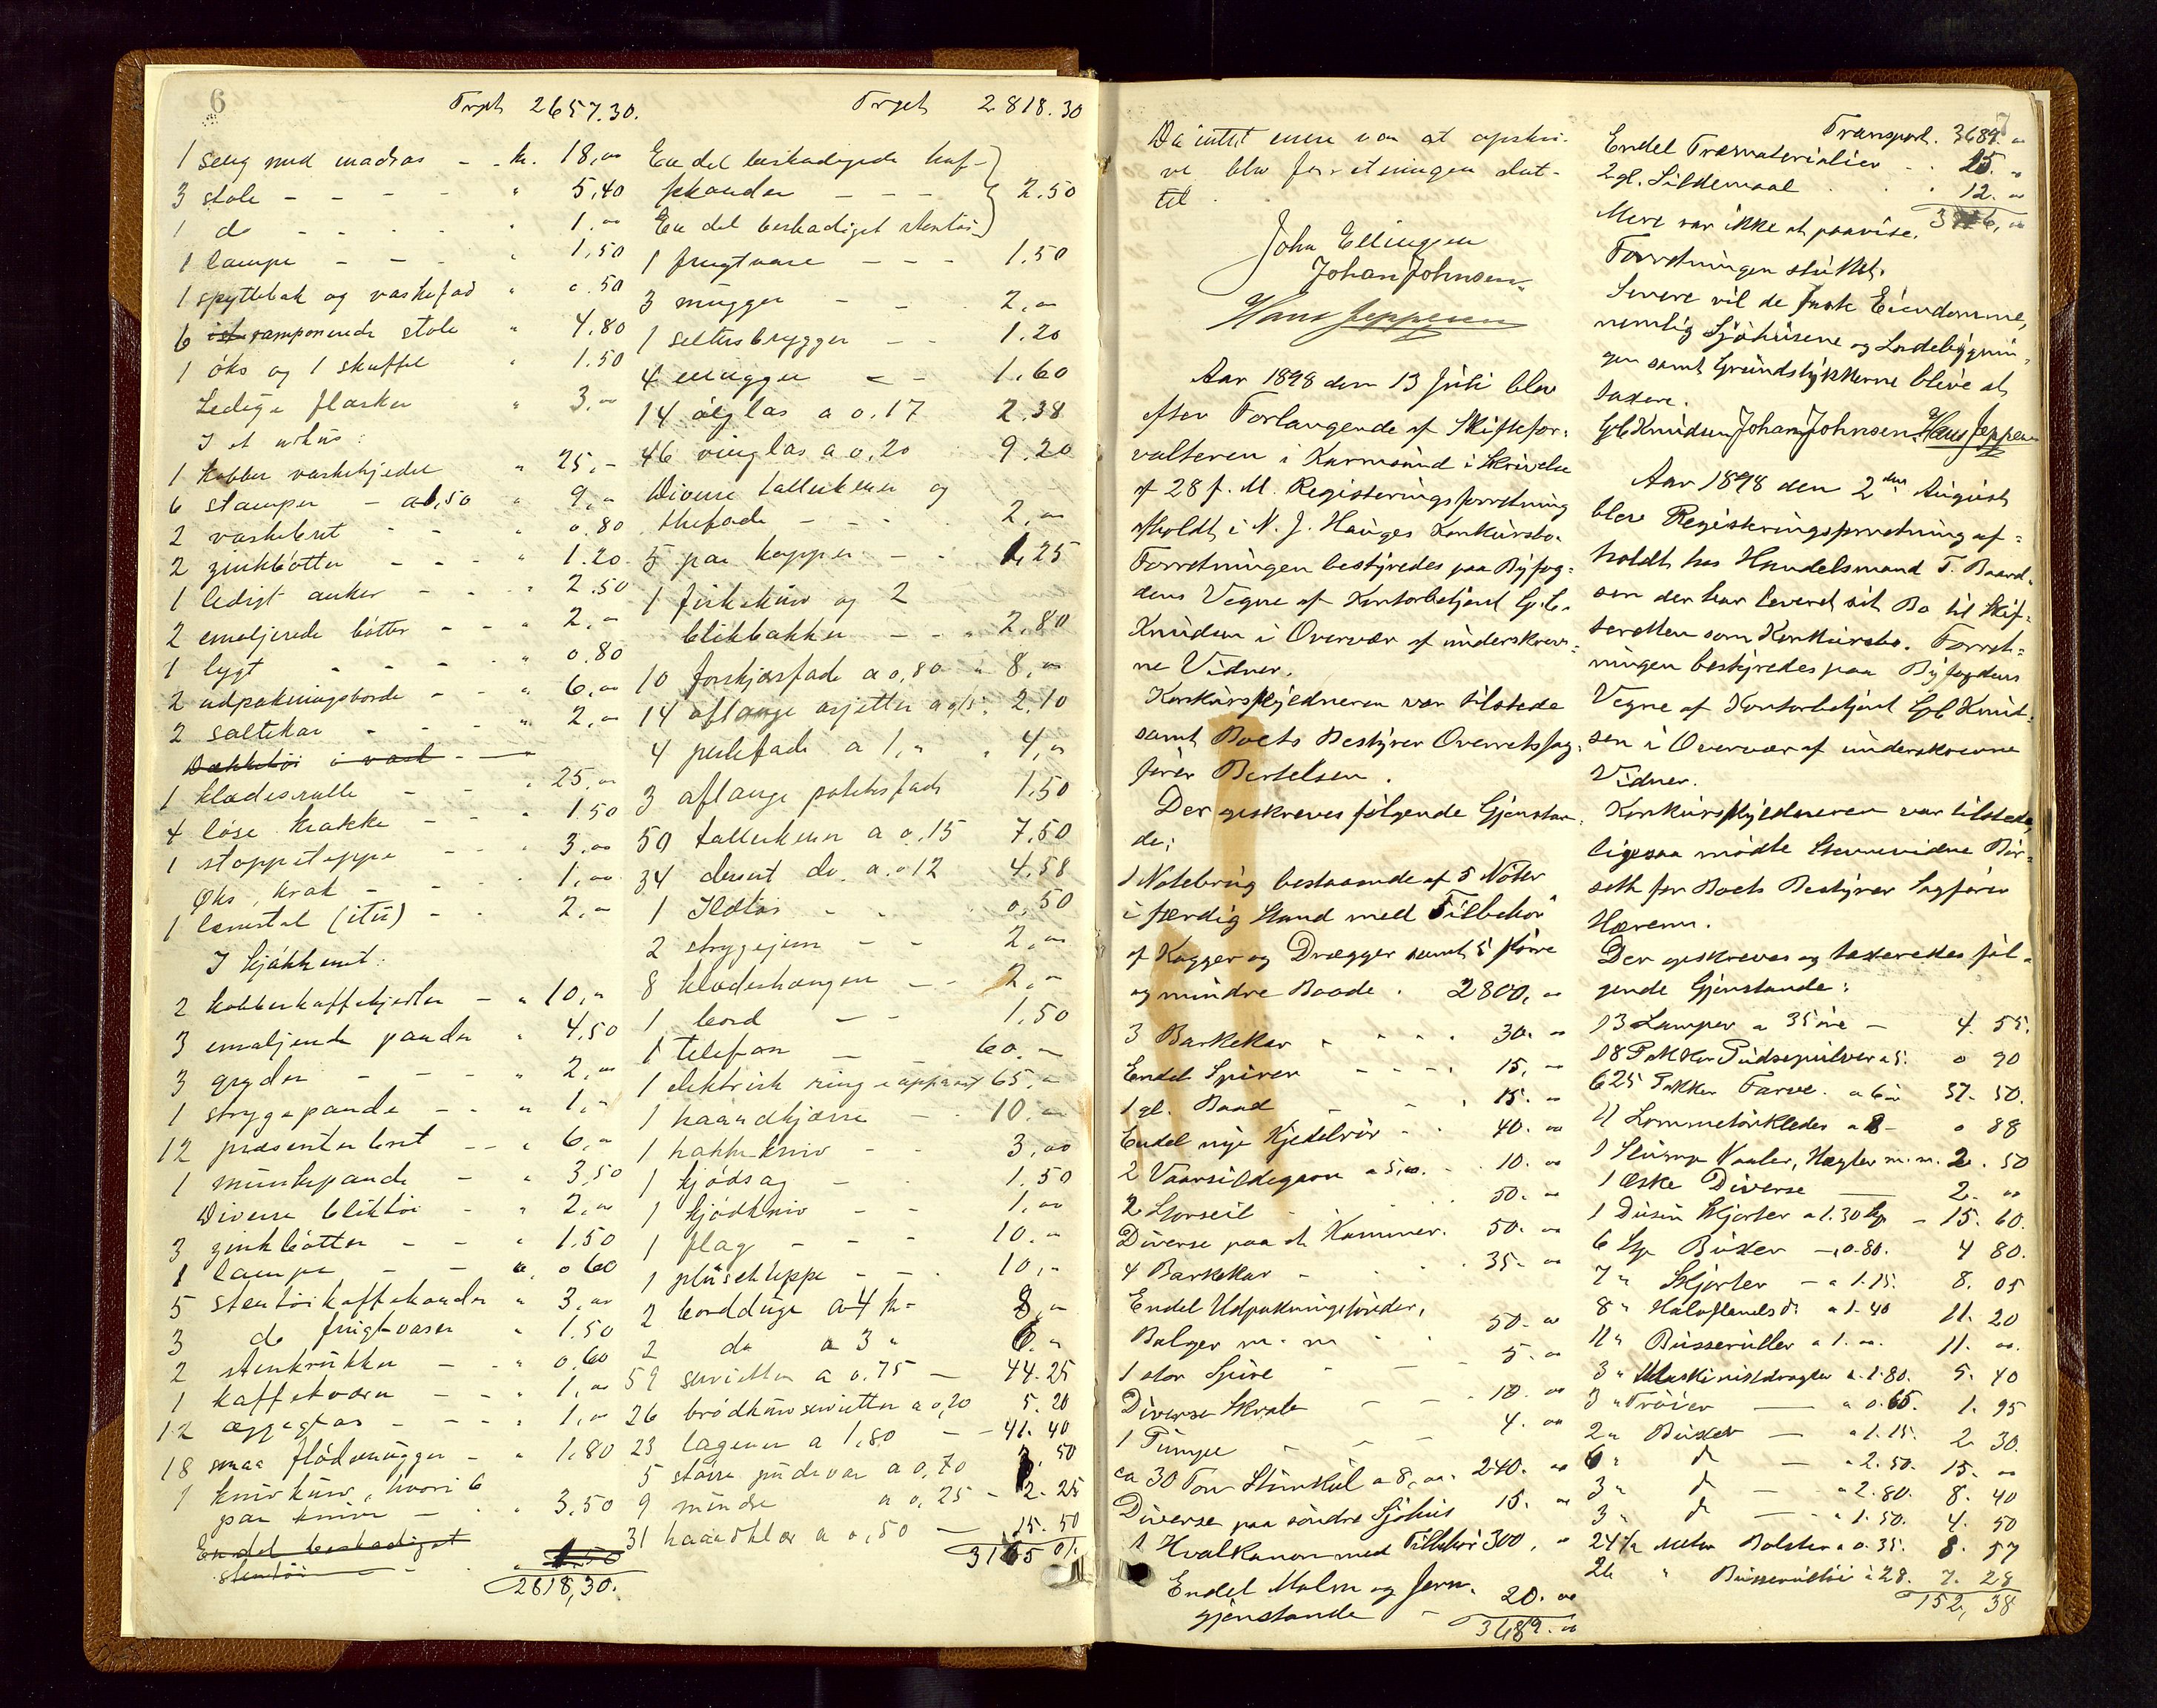 6
Trspt 2657.30.
1 seng med madras - kr. 18,00
3 stole - - - " 5,40
1 do - - . " 1.00
1 lampe - - - " 1,50
1 spyttebak og vaskefad " 0.50
6 ramponerede stole " 4,80
1 øks og 1 skuffel " 1.50
Ledige flasker " 3,00
I et uthus:
1 kobber vaskekjedel " 25,-
6 stamper - a 1,50 " 9,"
2 vaskebret - - " 0.80
2 zinkbøtter - - - " 1.20
1 ledigt anker - - " 2.50
2 emaljerede bøtter - - " 2,-
1 lygt - - - - " 0,80
2 udpakningsborde - - " 6,00
2 saltekar - - - " 2,00
Dækketøi i vask
1 klædesrulle - - " 25,00
4 løse krakke - - " 1.50
1 stoppeteppe - - " 3.00
Øks, krak - - - " 1,00
1 lænestol (itu) - . 2,-
I kjøkkenet:
2 kobberkaffekjedler - " 10,"
3 emaljerede pander " 4,50
3 gryder - - - " 2,00
1 strygepande - - " 1,-
12 præsenterbret - - " 6,"
1 munkepande - " 3,50
Diverse bliktøi - " 2,00
3 zinkbøtter - - " 1.50
1 lampe - - " 0 60
5 stentøikaffekander " 3,00
3 do frugtvaser " 1.50
2 stenkrukker - - " 0,60
1 kaffekværn - - " 1,00
12 æggeglas - - - " 1,00
18 smaa flødemugger - " 1,80
1 knivkurv, hvori 6
par knive - . " 3,50
En del beskadiget
stentøi - - . " 1.50
2818,30.
Trspt 2818.30
En del beskadigede kaf-
fekander - - - 2.50
En del beskadiget stentøi
1 frugtvase - - - 1.50
3 mugger - - 2,00
1 seltersbrygger - - 1.20
4 mugger - - 1.60
14 ølglas a 0.17 2.38
46 vinglas a 0,20 9.20
Diverse tallerkener og
thefade - - - 2,00
5 par kopper - - 1,25
1 fiskekurv og 2
blikbakker - - " 2,80
10 forskjærsfade a 0,80 " 8,00
14 aflange asjetter a 0,15. 2,10
4 perlefade a 1," " 4,"
3 aflange potetesfade 1.50
50 tallerkener a 0.15 7,50
34 desert do. a. 0 12 4.58
1 Ildtøi - - 0,50
2 strygejern - - 2,00
8 klædeshænger - - 2,-
1 bord - - 1,50
1 telefon - - 60.-
1 elektrisk ringeapparat 65,-
1 haandkjærre - - 10,00
1 hakkekniv - - 3,00
1 kjødsag - - 1.50
1 kjødkniv - - 1,00
1 flag - - - 10.-
1 plüschteppe - - 10,-
2 bordduge a 4 kr- 8,-
2 do a 3 " 6,"
59 servietter a 0.75 - 44.25
26 brødkurvservietter a 0,20 5.20
23 lagener a 1,80 - 41.40
5 større pudevar a 0,70 3,50
9 mindre a 0,25 - 2.25
31 haandklær a 0,50 - 15.50
3165 01.
Da intet mere var at opskri-
ve blev forretningen slut-
tet.
John Ellingsen
Johan Johnsen.
Hans Jeppesen
Aar 1898 den 13 Juli blev
efter Forlangende af Skiftefor-
valteren i Karmsund i Skrivelse
af 28 f. M. Registeringsforretning
afholdt i N. J. Hauges Konkursbo.
Forretningen bestyredes paa Byfog-
dens Vegne af Kontorbetjent Gjb.
Knudsen i Overvær af underskrev-
ne Vidner.
Konkursskyldneren var tilstede
samt Boets Bestyrer Overretssag-
fører Bertelsen.
Der opskreves følgende Gjenstan-
de:
1 Notebrug bestaaende af 5 Nøter
i færdig Stand med Tilbehør
af Kagger og Drægger samt 5 større
og mindre Baade . 2800,00
3 Barkekar " . . . 30.00
Endel Spirer - - - . 15,00
1 gl. Baad - - . 15.00
Endel nye Kjedelrør - . 40.00
2 Vaarsildegarn a 5,00. . 10.00
2 Storseil - . . 50.00
Diverse paa et Kammer. 50.00
4 Barkekar - . . 35.00
Endel Udpakningstønder,
Balger m. m . . 50.00
1 stor Spire - - 5.00
Diverse Skrab - - . 10.00
1 Pumpe - - - 4.00
ca 30 Ton Stenkul a 8,00. 240.00
Diverse paa søndre Sjøhus 15.00
1 Hvalkanon med Tilbehør 300,00
Endel Malm og Jern-
gjenstande - 20.00
3689.00
7
Transport. 3689.00
Endel Træmaterialier . . 25.00
2 gl. Sildemaal . . . 12.00
3726,00
Mere var ikke at paavise.
Forretningen sluttet.
Senere vil de faste Eiendomme,
nemlig Sjøhusene og Lodebygnin-
gen samt Grundstykkerne blive at
taxere.
Gjb Knudsen Johan Johnsen. Hans Jeppesen
Aar 1898 den 2den August
blev Registeringsforretning af-
holdt hos Handelsmand T. Baard-
sen der har leveret sit Bo til Skif-
teretten som Konkursbo. Forret-
ningen bestyredes paa Byfogdens
Vegne af Kontorbetjent Gjb Knud-
sen i Overvær af underskrevne
Vidner.
Konkursskyldneren var tilstede,
ligesaa mødte Stevnevidne Bir-
seth for Boets Bestyrer Sagfører
Hærem.
Der opskreves og taxeredes føl-
gende Gjenstande:
13 Lamper a 35 øre - 4. 55.
18 Pakker Pudsepulver a 5. 0 90
625 Pakker Farve. a 6 ø 37. 50.
11 Lommetørklæder a 8 - 0 88
1 Slump Naaler, Hægter m. m. 2. 50
1 Æske Diverse - 2. 00
1 Dusin Skjorter a 1.30 Stp - 15. 60.
6 Stp Buxer - " 0.80. 4 80.
7 " Skjorter - a 1.15. 8. 05
8 " Halvflanels do a 1.40 11. 20
11 " Busseruller a 1.00. 11. 00.
3 " Maskinistdragter a. 1.80. 5. 40
3 " Trøier - a 0.65. 1. 95
2 " Buxer - a 1.15. 2. 30.
6 " do - a 2.50. 15. 00
3 " do - a 2.80. 8. 40
3 " do - a 1.50. 4. 50
24½ Meter Bolster a 0.35. 8. 57
26 " Busserultøi a 28. 7. 28
152, 38